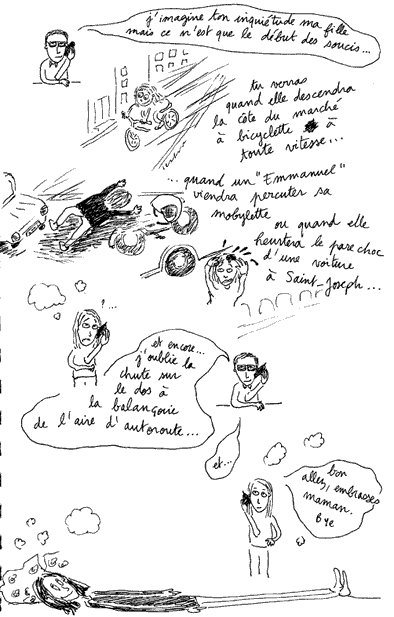 j'imagine ton inquiétude ma fille
mais ce n'est que le début des soucis...
tu verras
quand elle descendra
la côte du marché
à bicyclette à
toute vitesse...
... quand un "Emmanuel"
viendra percuter sa
mobylette
ou quand elle
heurtera le pare choc
d'une voiture
à Saint-Joseph...
!
?...
et encore...
j'oublie la
chute sur
le dos à
la balançoire
de l'aire d'autoroute...
et...
bon
allez, embrasses
maman.
Bye